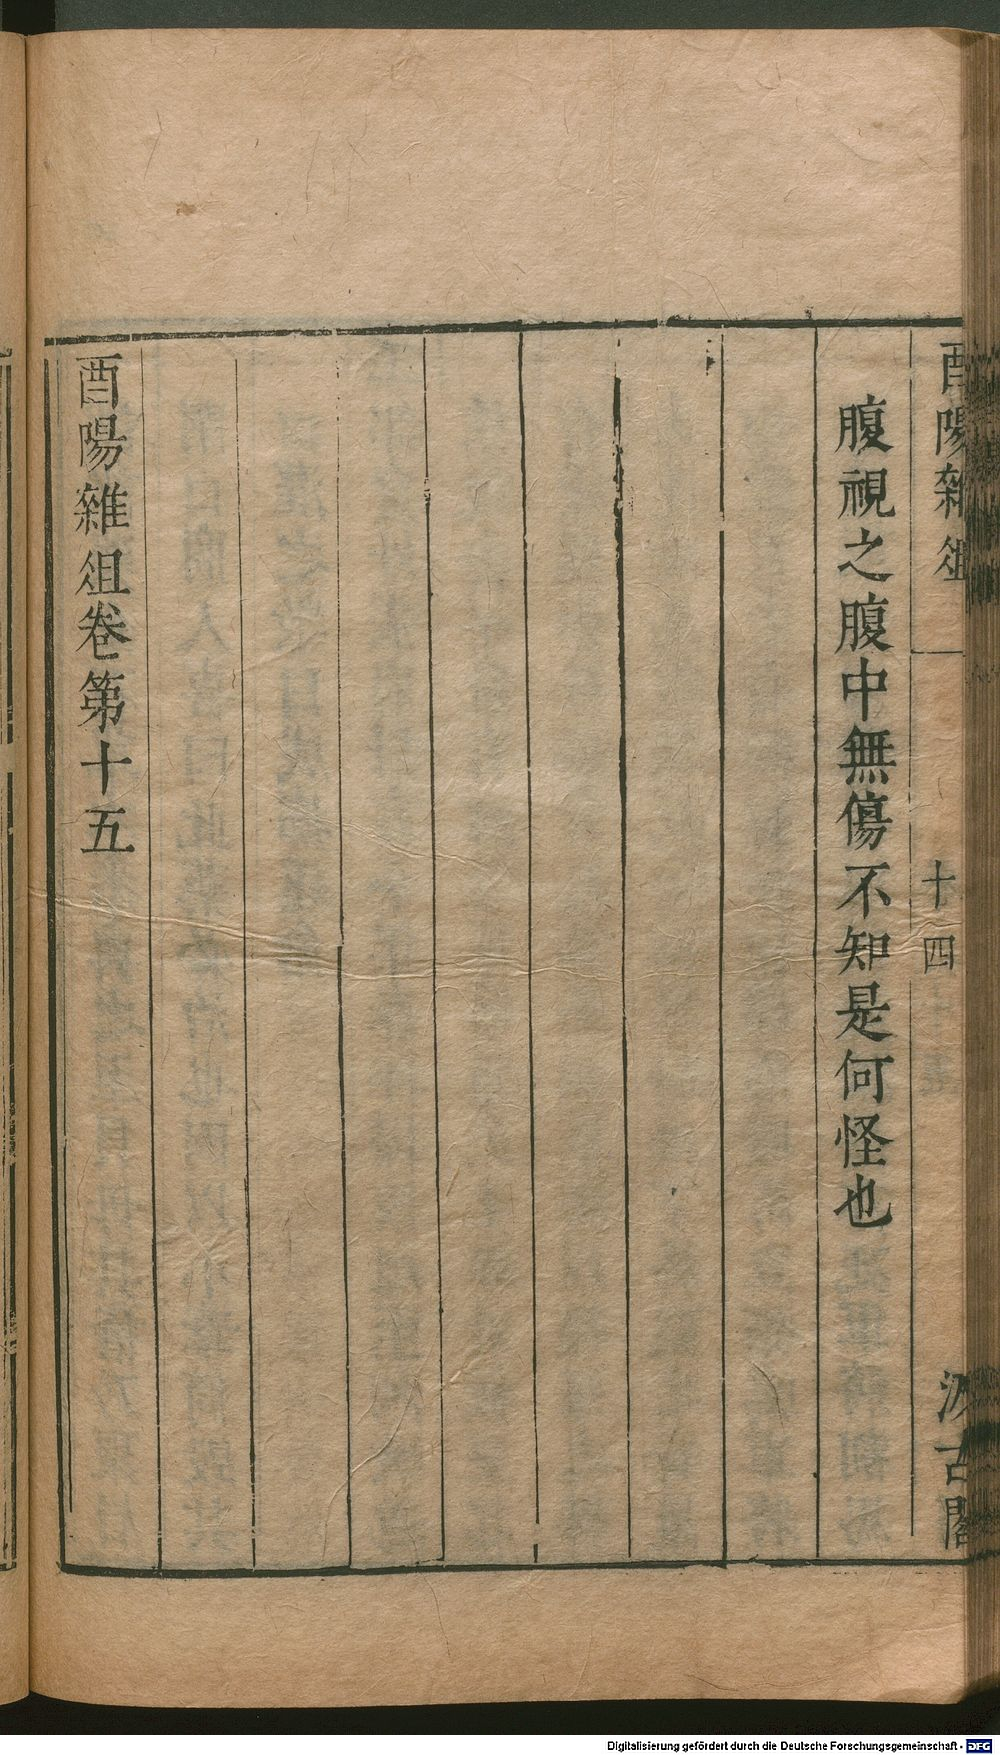 酉陽雜俎
十四
汲古閣
腹視之腹中無傷不知是何怪也
酉陽雜俎卷第十五
Digitalisierung gefördert durch die Deutsche Forschungsgemeinschaft - DFG